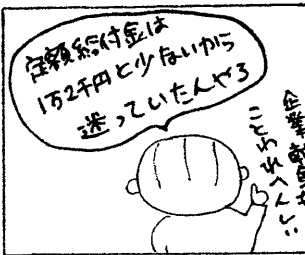 定額給付金は
1万2千円と少ないから
迷っていたんやろ
企業献金は
ことわれへんしい